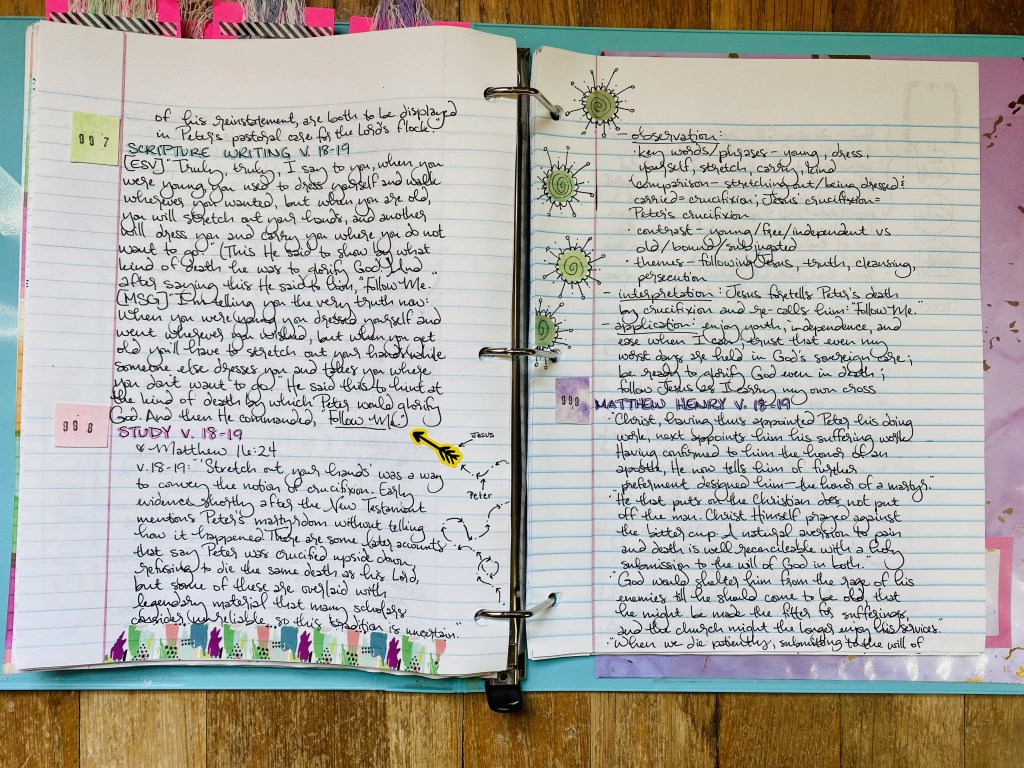 of his reinstatement, are both to be displayed
in Peter's pastoral care for the Lord's flock."
997
SCRIPTURE WRITING V. 18-19
[ESV] "Truly, truly, I say to you, when you
were young, you used to dress yourself and walk
wherever you wanted, but when you are old,
you will stretch out your hands, and another
will dress you and carry you where you do not
want to go." (This He said to show by what
kind of death he was to glorify God.) And
after saying this He said to him, "Follow Me."
[MSG] "I'm telling you the very truth now:
When you were young you dressed yourself and
went wherever you wished, but when you get
old you'll have to stretch out your hands while
someone else dresses you and takes you where
you don't want to go." He said this to hint at
the kind of death by which Peter would glorify
God. And then He commanded, "Follow Me."
998
STUDY V. 18-19
Matthew 16:24
v. 18-19: "'Stretch out your hands' was a way
to convey the notion of crucifixion. Early
evidence shortly after the New Testament
mentions Peter's martyrdom without telling
how it happened. There are some later accounts
that say Peter was crucified upside down,
refusing to die the same death as his Lord,
but some of these are overlaid with
legendary material that many scholars
consider unreliable, so this tradition is uncertain."
JESUS
Peter
- observation:
· key words/phrases - young, dress,
yourself, stretch, carry, kind
· comparison - stretching out/being dressed &
carried = crucifixion; Jesus' crucifixion =
Peter's crucifixion
· contrast - young/free/independent vs
old/bound/subjugated
· themes - following Jesus, truth, cleansing,
persecution
- interpretation: Jesus foretells Peter's death
by crucifixion and re-calls him: "Follow Me."
- application: enjoy youth, independence, and
ease when I can; trust that even my
worst days are held in God's sovereign care;
be ready to glorify God even in death;
follow Jesus as I carry my own cross
999
MATTHEW HENRY V. 18-19
"Christ, having thus appointed Peter his doing
work, next appoints him his suffering work.
Having confirmed to him the honor of an
apostle, He now tells him of further
preferment designed him—the honor of a martyr."
"He that puts on the Christian does not put
off the man. Christ Himself prayed against
the bitter cup. A natural aversion to pain
and death is well reconcileable with a holy
submission to the will of God in both."
"God would shelter him from the rage of his
enemies till he should come to be old, that
he might be made the fitter for sufferings,
and the church might the longer enjoy his services."
"When we die patiently, submitting to the will of